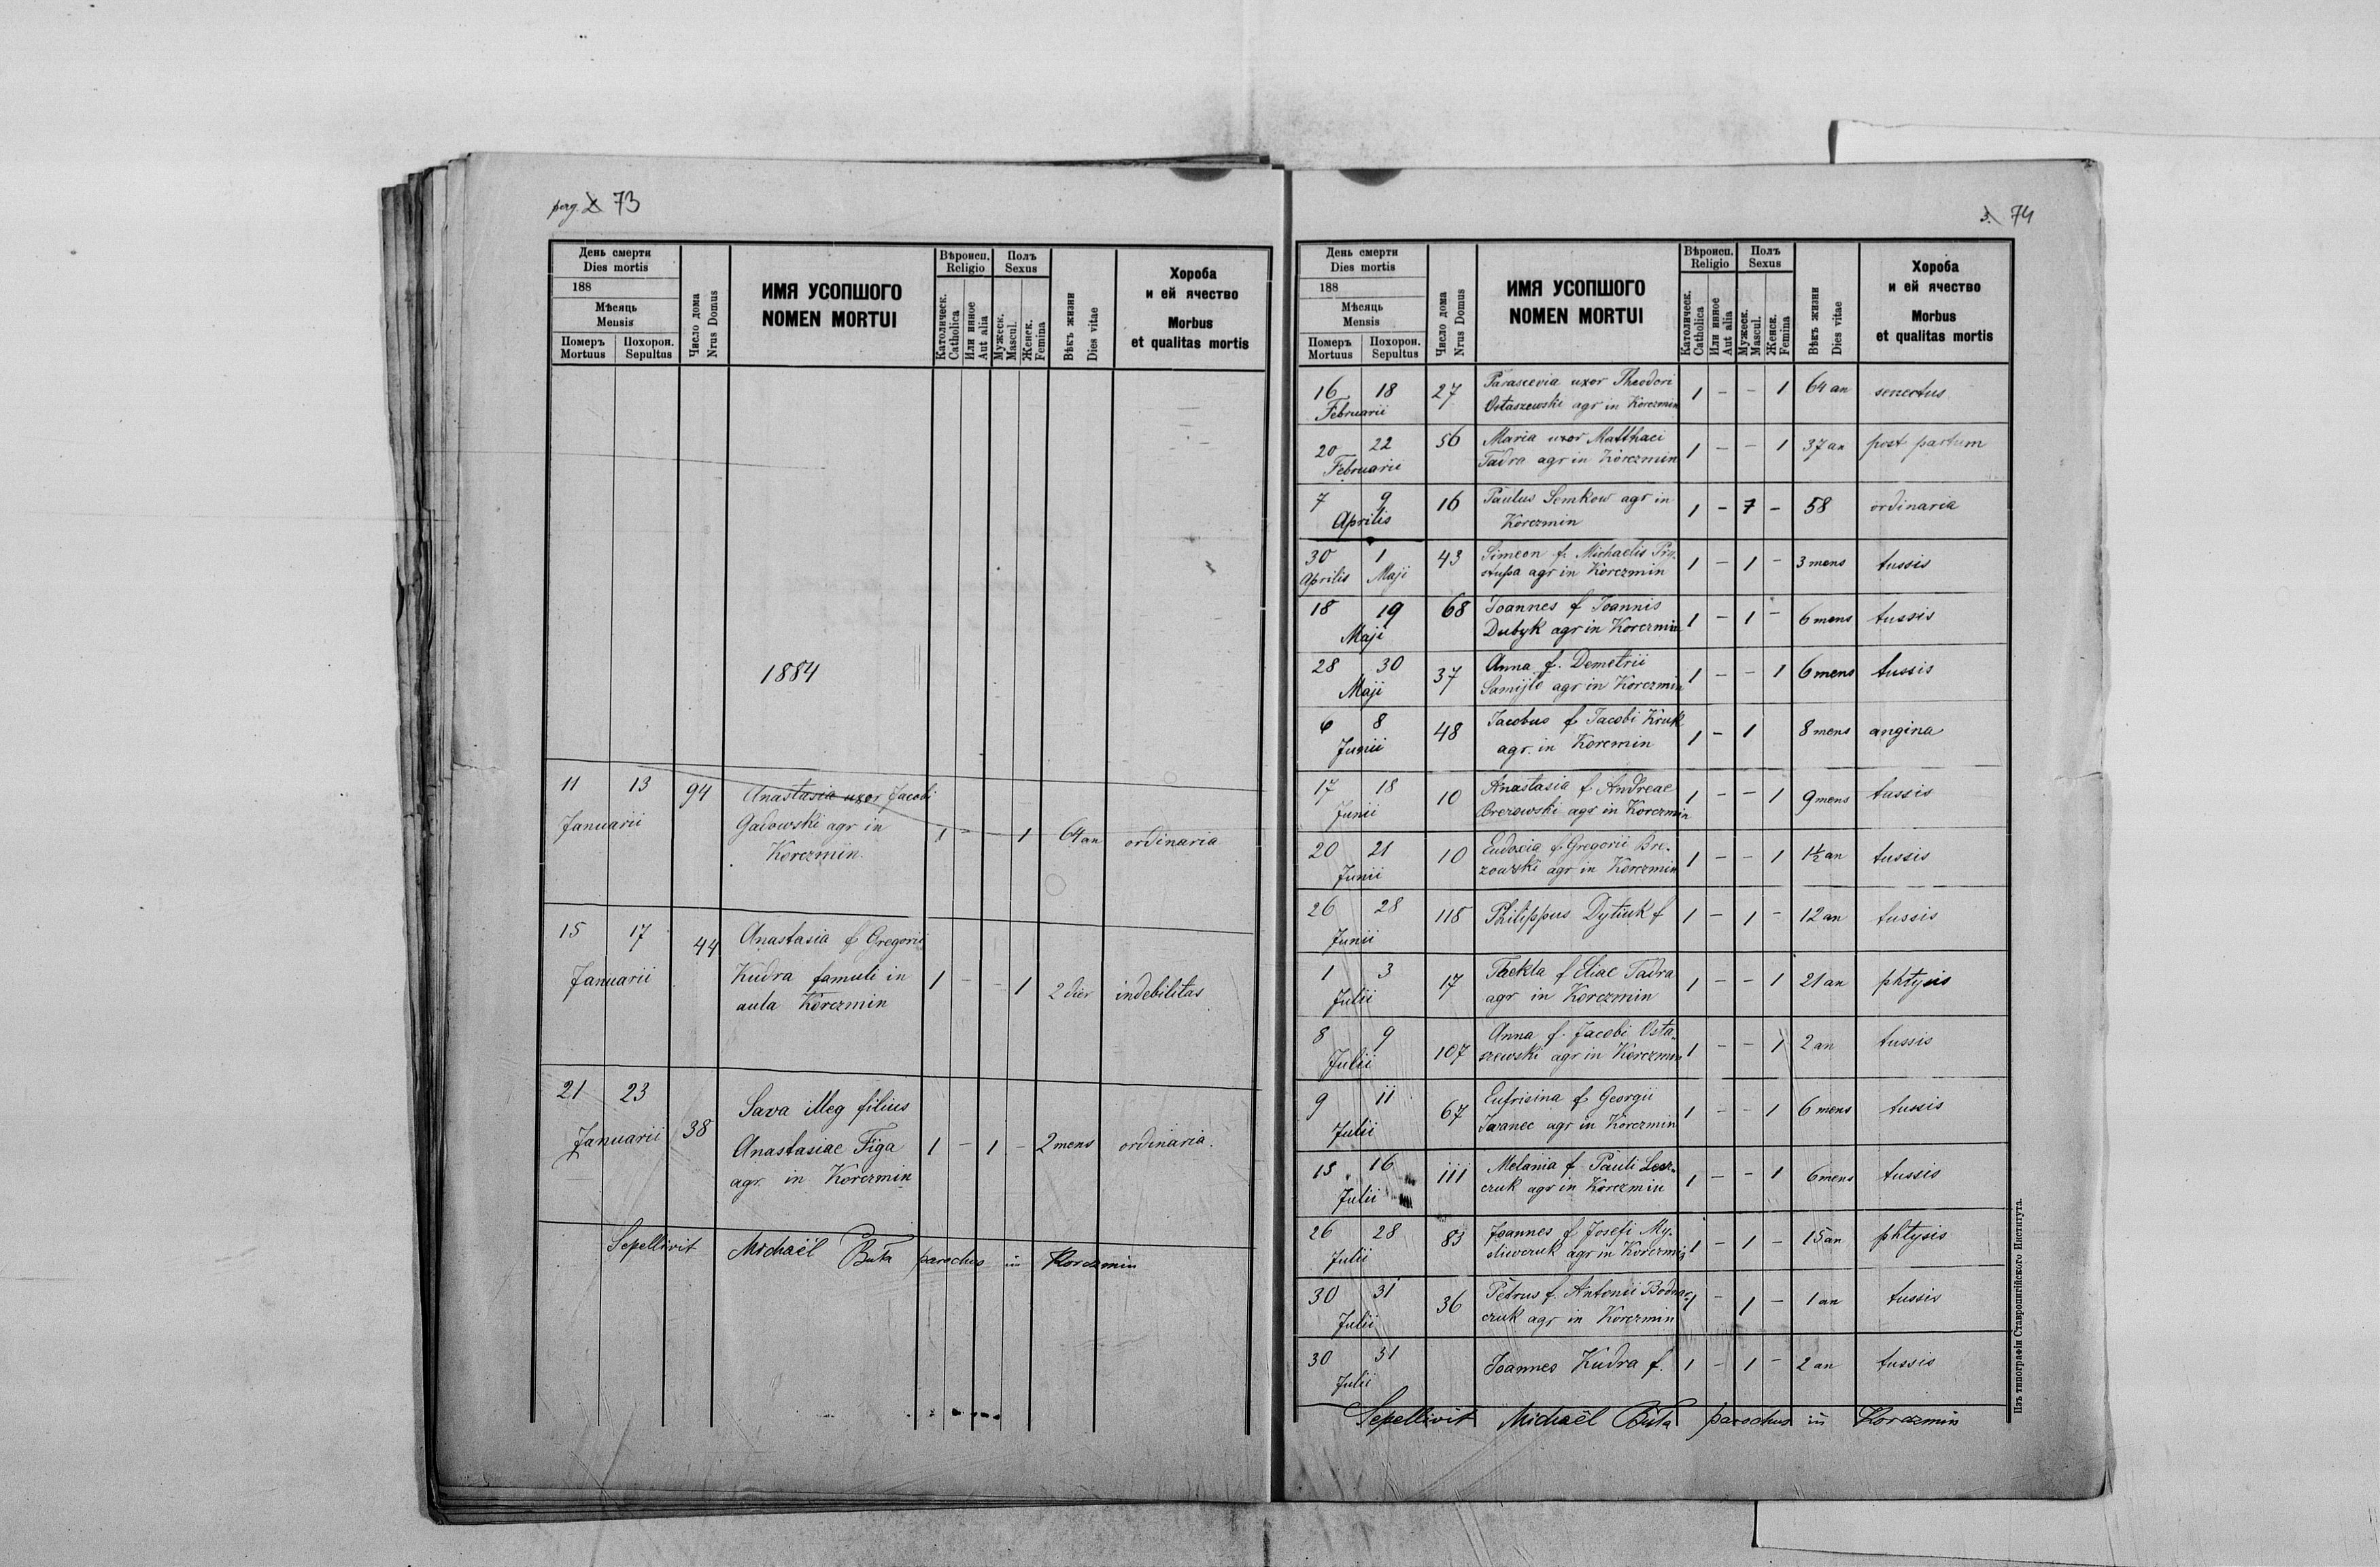 perg. 2 73
День смерти
Dies mortis
188
Мѣсяць
Mensis
Померъ
Mortuus
Похорон.
Sepultus
Число дома
Nrus Domus
ИМЯ УСОПШОГО
NOMEN MORTUI
Вѣроисп.
Religio
Католическ.
Catholica
Или инное
Aut alia
Полъ
Sexus
Мужеск.
Mascul.
Женск.
Femina
Вѣкъ жизни
Dies vitae
Хороба
и ей ячество
Morbus
et qualitas mortis
1884
11 13 94 Anastasia uxor Jacobi
Januarii Gadowski agr in 1 - 1 64 an ordinaria
Korczmin.
15 17 44 Anastasia f Gregorii
Januarii Kudra famuli in 1 - - 1 2 dier indebilitas
aula Korczmin
21 23 Sava illeg filius
Januarii 38 Anastasiae Figa 1 - 1 - 2 mens ordinaria.
agr. in Korczmin
Sepellivit Michaël Buta parochus in Korczmin
3. 74
День смерти
Dies mortis
188
Мѣсяць
Mensis
Померъ
Mortuus
Похорон.
Sepultus
Число дома
Nrus Domus
ИМЯ УСОПШОГО
NOMEN MORTUI
Вѣроисп.
Religio
Католическ.
Catholica
Или инное
Aut alia
Полъ
Sexus
Мужеск.
Mascul.
Женск.
Femina
Вѣкъ жизни
Dies vitae
Хороба
и ей ячество
Morbus
et qualitas mortis
16 18 27 Parascevia uxor Theodori 1 - - 1 64 an senectus
Februarii Ostaszewski agr in Korczmin
20 22 56 Maria uxor Matthaei 1 - - 1 37 an post partum
Februarii Tadra agr in Korczmin
7 9 16 Paulus Semkow agr in 1 - 7 - 58 ordinaria
Aprilis Korczmin
30 1 43 Simeon f. Michaelis Pry- 1 - 1 - 3 mens tussis
Aprilis Maji stupa agr in Korczmin
18 19 68 Joannes f Joannis 1 - 1 - 6 mens tussis
Maji Dubyk agr in Korczmin
28 30 37 Anna f. Demetrii 1 - - 1 6 mens tussis
Maji Samijlo agr in Korczmin
6 8 48 Jacobus f Jacobi Kruk 1 - 1 8 mens angina
Junii agr. in Koremin
17 18 10 Anastasia f Andreae 1 - - 1 9 mens tussis
Junii Brezowski agr in Korczmin
20 21 10 Eudoxia f Gregorii Bre- 1 - - 1 1½ an tussis
Junii zowski agr in Korczmin
26 28 118 Philippus Dytiuk f 1 - 1 - 12 an tussis
Junii
1 3 17 Thekla f Eliae Tadra 1 - - 1 21 an phtysis
Julii agr in Korczmin
8 9 107 Anna f. Jacobi Osta- 1 - - 1 2 an tussis
Julii szewski agr in Korczmin
9 11 67 Eufrisina f Georgii 1 - - 1 6 mens tussis
Julii agr in Korczmin
15 16 111 Melania f Pauli 1 - - 1 6 mens tussis
Julii czuk agr in Korczmin
26 28 83 Joannes f Josefi My- 1 - 1 - 15 an phtysis
Julii sliwczuk agr in Korczmin
30 31 36 Petrus f. Antonii Bodnar- 1 - 1 - 1 an tussis
Julii czuk agr in Korczmin
30 31 Joannes Kudra f. 1 - 1 - 2 an tussis
Julii
Sepellivit Michaël Buta parochus in Korczmin
Изъ типографіи Ставропигійского Института.